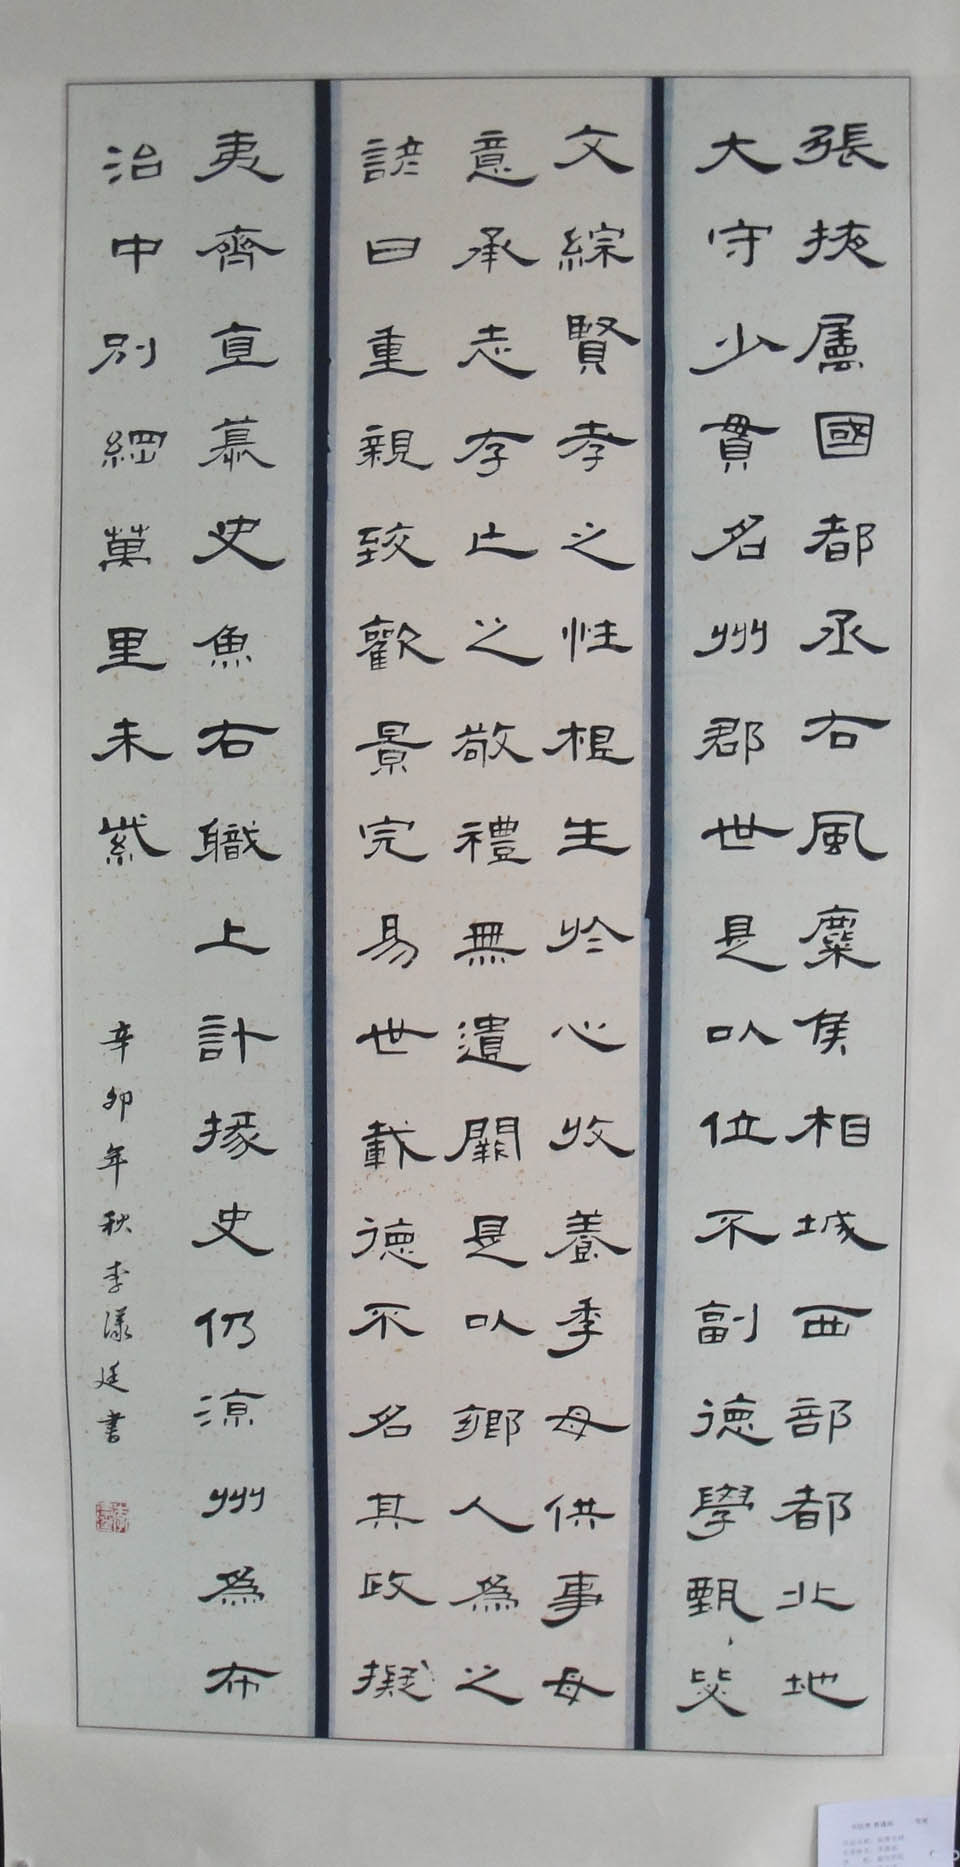 張掖屬國都丞右風麋侯相城西部都北地
大守少貫名州郡世是以位不副德學甄㚇
文綜賢孝之性根生於心收養季母供事母
意承志存亡之敬禮無遺闕是以鄉人為之
諺曰重親致歡景完易世載德不名其政擬
夷齊直慕史魚右職上計掾史仍涼州為布
治中別綱萬里朱紫
辛卯年秋李漾廷書